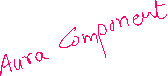 Aura Component